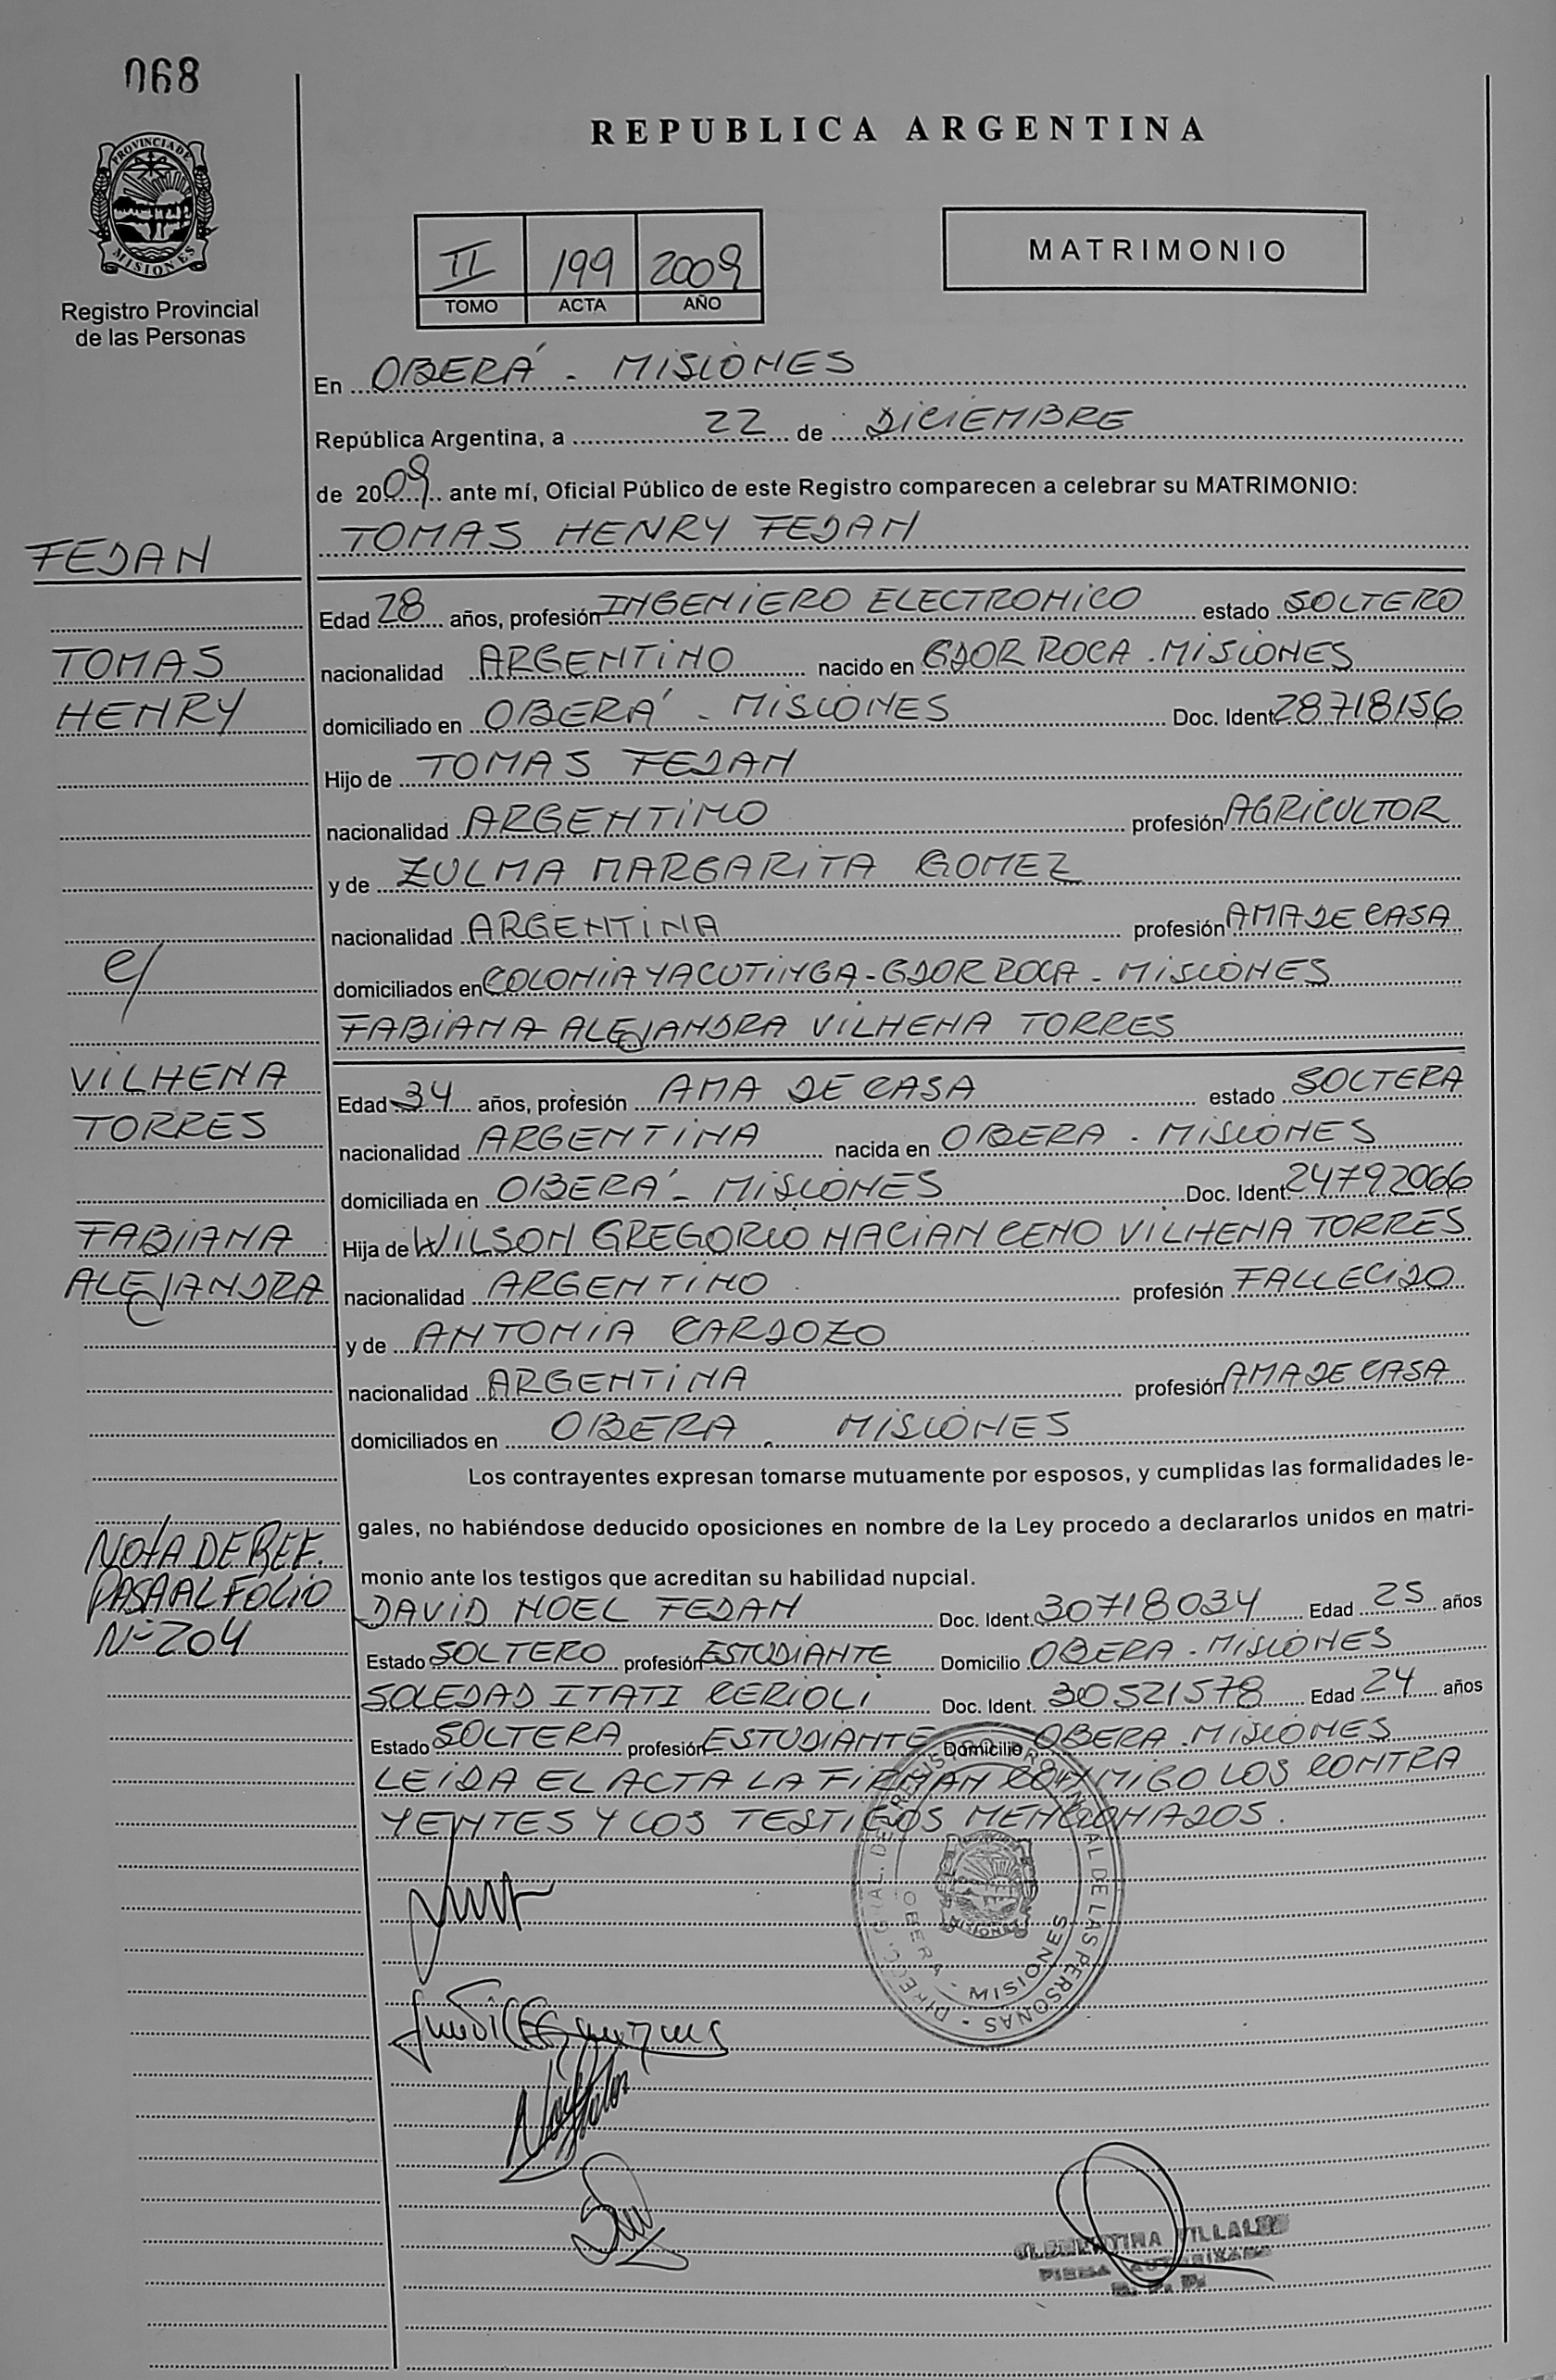 068
PROVINCIA DE
MISIONES
Registro Provincial
de las Personas
REPUBLICA ARGENTINA
II 199 2009
TOMO ACTA AÑO
MATRIMONIO
En OBERÁ - MISIONES
República Argentina, a 22 de DICIEMBRE
de 2009 ante mí, Oficial Público de este Registro comparecen a celebrar su MATRIMONIO:
TOMAS HENRY FEDAN
FEDAN
Edad 28 años, profesión INGENIERO ELECTRONICO estado SOLTERO
TOMAS
nacionalidad ARGENTINO nacido en GDOR ROCA - MISIONES
HENRY
domiciliado en OBERÁ - MISIONES Doc. Ident 28718156
Hijo de TOMAS FEDAN
nacionalidad ARGENTINO profesión AGRICULTOR
y de ZULMA MARGARITA GOMEZ
nacionalidad ARGENTINA profesión AMA DE CASA
domiciliados en COLONIA YACUTINGA - GDOR ROCA - MISIONES
FABIANA ALEJANDRA VILHENA TORRES
VILHENA
Edad 34 años, profesión AMA DE CASA estado SOLTERA
TORRES
nacionalidad ARGENTINA nacida en OBERA - MISIONES
domiciliada en OBERÁ - MISIONES Doc. Ident. 24792066
FABIANA
Hija de WILSON GREGORIO NACIANCENO VILHENA TORRES
ALEJANDRA
nacionalidad ARGENTINO profesión FALLECIDO
y de ANTONIA CARDOZO
nacionalidad ARGENTINA profesión AMA DE CASA
domiciliados en OBERA - MISIONES
Los contrayentes expresan tomarse mutuamente por esposos, y cumplidas las formalidades le-
gales, no habiéndose deducido oposiciones en nombre de la Ley procedo a declararlos unidos en matri-
monio ante los testigos que acreditan su habilidad nupcial.
NOTA DE REF.
PASA AL FOLIO
Nº 204
DAVID NOEL FEDAN Doc. Ident. 30718034 Edad 25 años
Estado SOLTERO profesión ESTUDIANTE Domicilio OBERA - MISIONES
SOLEDAD ITATI CERIOLI Doc. Ident. 30521578 Edad 24 años
Estado SOLTERA profesión ESTUDIANTE Domicilio OBERA - MISIONES
LEIDA EL ACTA LA FIRMAN CONMIGO LOS CONTRA
YENTES Y LOS TESTIGOS MENCIONADOS.
DIRECC. GRAL. DE REGISTRO PROVINCIAL DE LAS PERSONAS
OBERA - MISIONES
MISIONES
CLEMENTINA
FIRMA AUTORIZADA